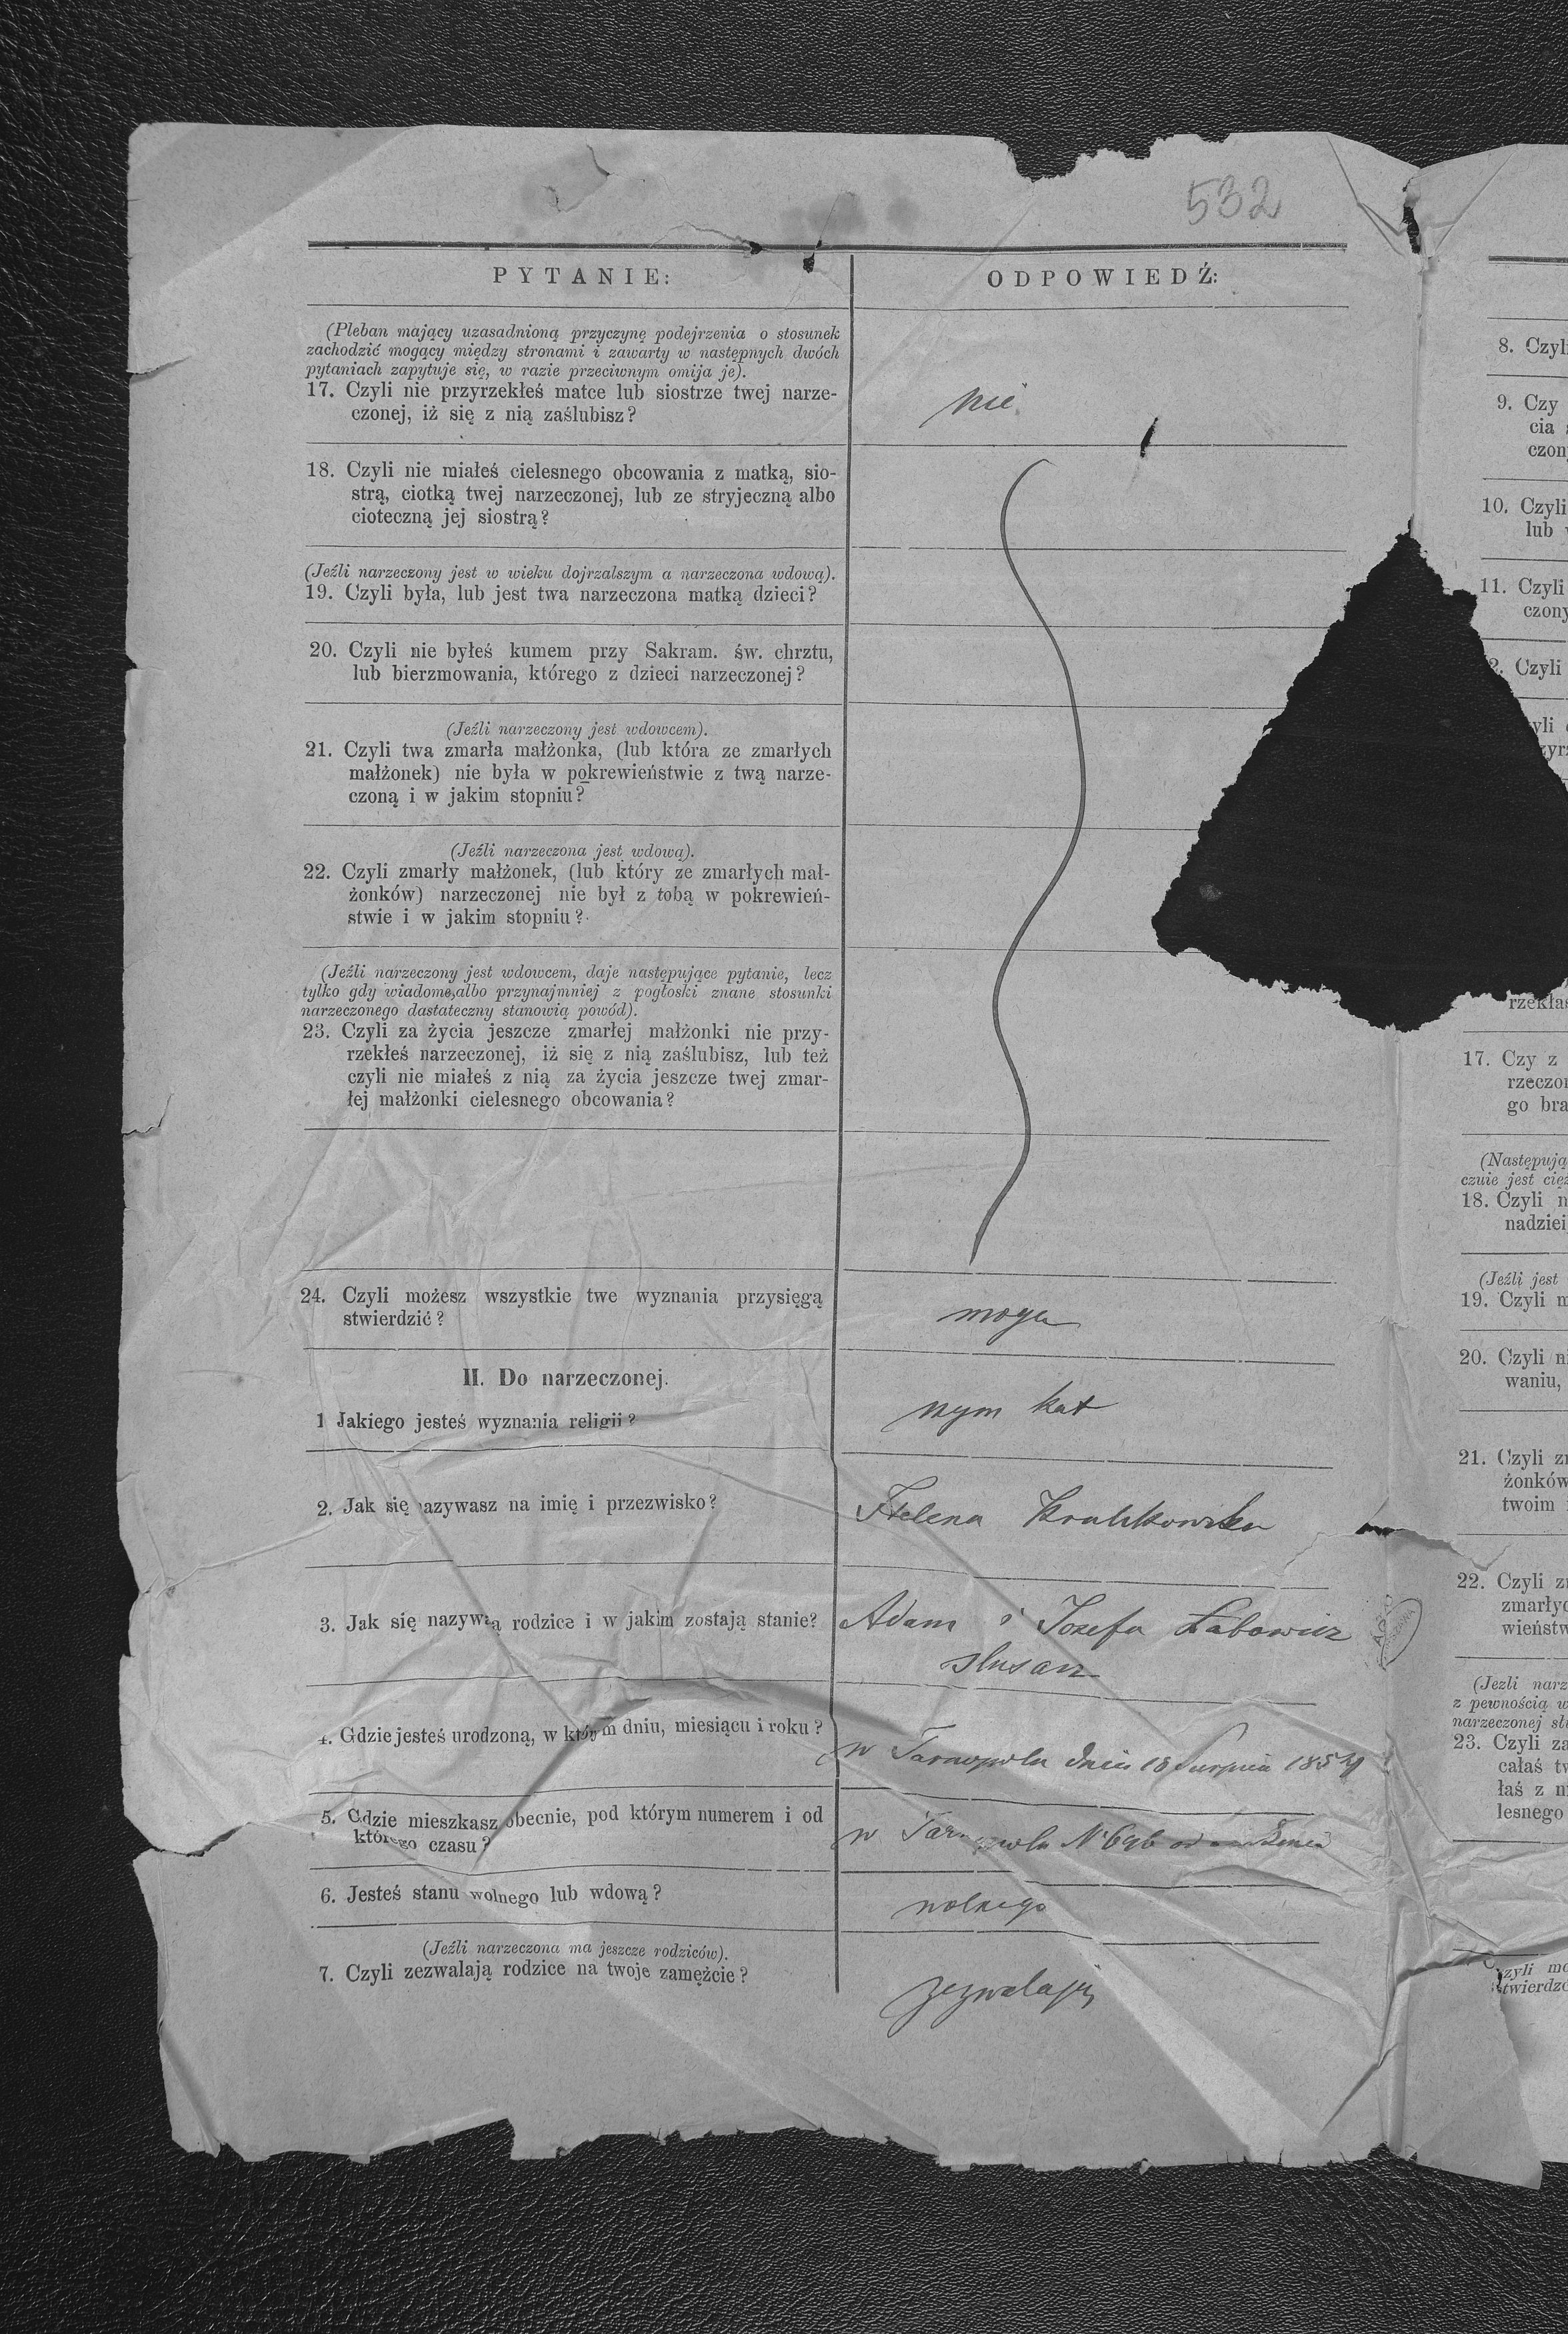 532
PYTANIE:
ODPOWIEDŹ:
(Pleban mający uzasadnioną przyczynę podejrzenia o stosunek
zachodzić mogący między stronami i zawarty w następnych dwóch
pytaniach zapytuje się, w razie przeciwnym omija je).
17. Czyli nie przyrzekłeś matce lub siostrze twej narze-
czonej, iż się z nią zaślubisz?
nie
18. Czyli nie miałeś cielesnego obcowania z matką, sio-
strą, ciotką twej narzeczonej, lub ze stryjeczną albo
cioteczną jej siostrą?
(Jeźli narzeczony jest w wieku dojrzalszym a narzeczona wdową).
19. Czyli była, lub jest twa narzeczona matką dzieci?
20. Czyli nie byłeś kumem przy Sakram. św. chrztu,
lub bierzmowania, którego z dzieci narzeczonej?
(Jeźli narzeczony jest wdowcem).
21. Czyli twa zmarła małżonka, (lub która ze zmarłych
małżonek) nie była w pokrewieństwie z twą narze-
czoną i w jakim stopniu?
(Jeźli narzeczona jest wdową).
22. Czyli zmarły małżonek, (lub który ze zmarłych mał-
żonków) narzeczonej nie był z tobą w pokrewień-
stwie i w jakim stopniu?
(Jeźli narzeczony jest wdowcem, daje następujące pytanie, lecz
tylko gdy wiadome, albo przynajmniej z pogłoski znane stosunki
narzeczonego dastateczny stanowią powód).
23. Czyli za życia jeszcze zmarłej małżonki nie przy-
rzekłeś narzeczonej, iż się z nią zaślubisz, lub też
czyli nie miałeś z nią za życia jeszcze twej zmar-
łej małżonki cielesnego obcowania?
24. Czyli możesz wszystkie twe wyznania przysięgą
stwierdzić?
mogę
II. Do narzeczonej.
1 Jakiego jesteś wyznania religii?
rzym kat
2. Jak się nazywasz na imię i przezwisko?
Helena
3. Jak się nazywają rodzice i w jakim zostają stanie?
Adam i Józefa Łabowicz
ślusarz
4. Gdzie jesteś urodzoną, w którym dniu, miesiącu i roku?
w Tarnopolu dnia 18 Sierpnia
5. Gdzie mieszkasz obecnie, pod którym numerem i od
którego czasu?
w Tarnopolu N 696 od
6. Jesteś stanu wolnego lub wdową?
wolnego
(Jeźli narzeczona ma jeszcze rodziców).
7. Czyli zezwalają rodzice na twoje zamęźcie?
zezwalają
8. Czyli
9. Czy
cia
czon
10. Czyli
lub
11. Czyli
czony
2. Czyli
yli
zyrz
rzekłaś
17. Czy z
rzeczon
go bra
(Następują
czuie jest cięż
18. Czyli n
nadziei
(Jeźli jest
19. Czyli m
20. Czyli ni
waniu,
21. Czyli zm
żonków
twoim
22. Czyli zm
zmarłyc
wieństw
(Jeźli narz
z pewnością w
narzeczonej st
23. Czyli za
całaś tw
łaś z n
lesnego
zyli mo
stwierdzi